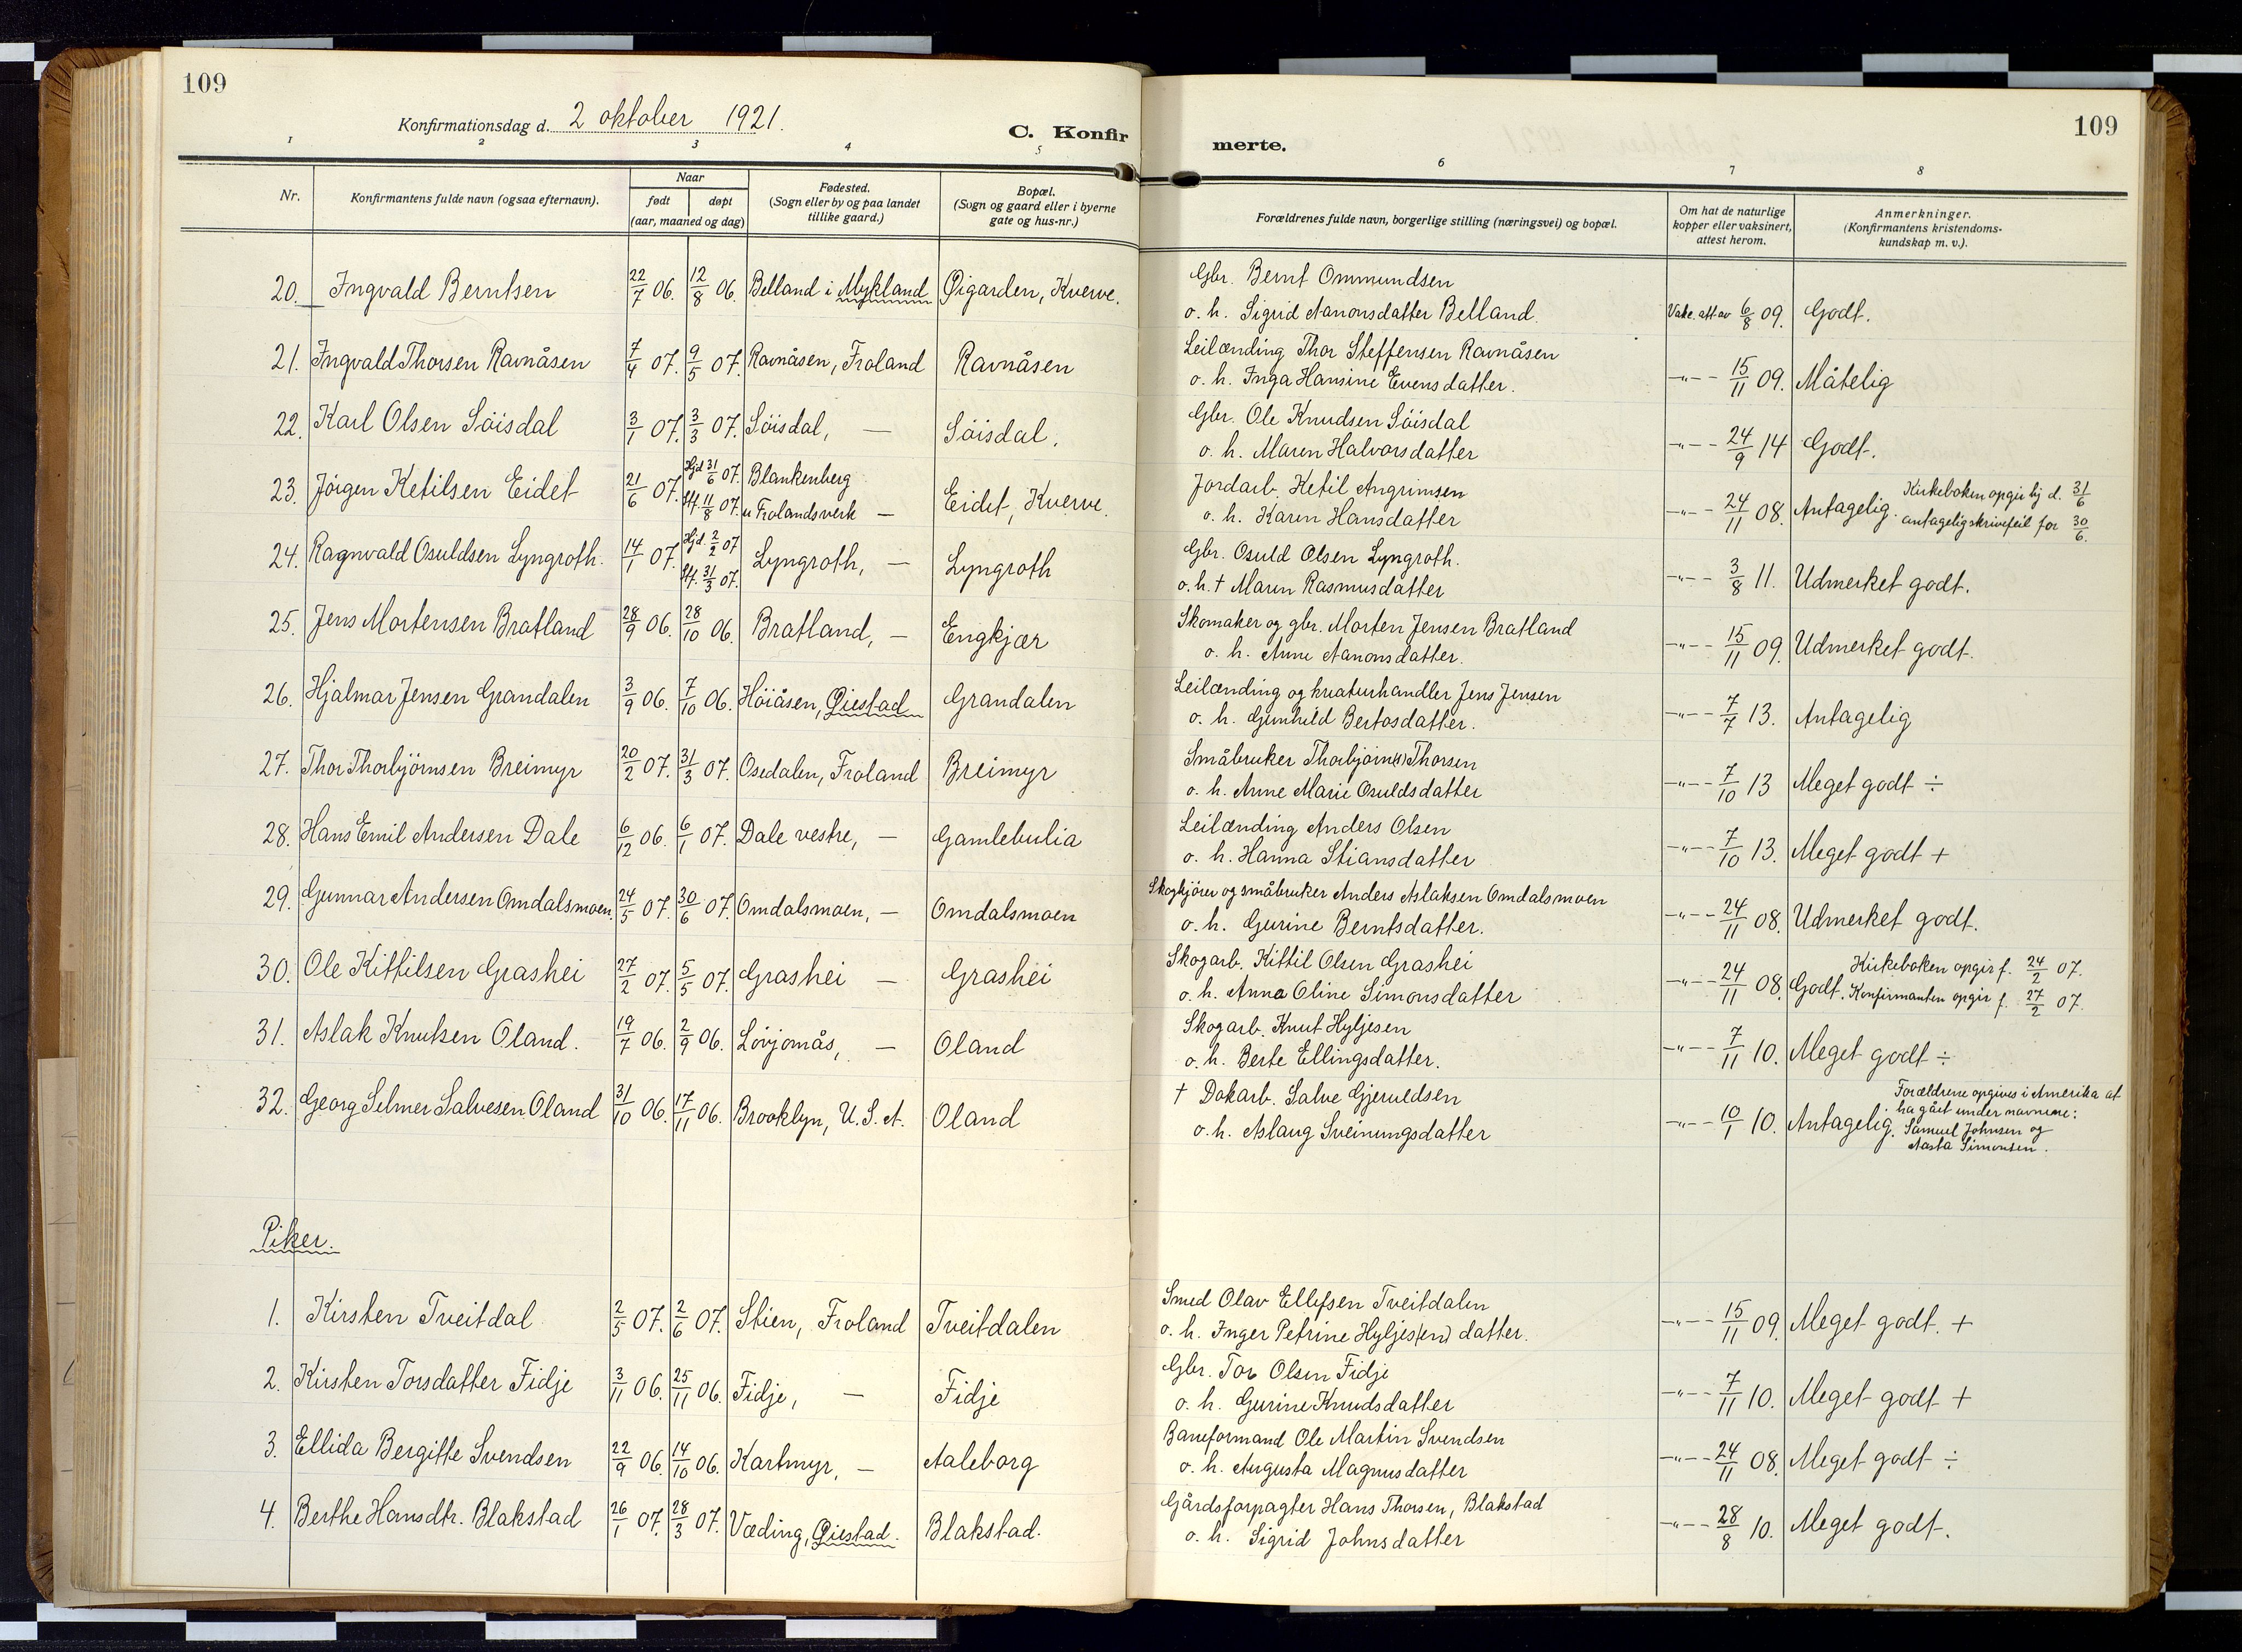 109
109
Konfirmationsdag d. 2 oktober 1921.
C. Konfirmerte.
1 2 3 4 5 6 7 8
Nr.
Konfirmantens fulde navn (ogsaa efternavn).
Naar
født
døpt
(aar, maaned og dag)
Fødested.
(Sogn eller by og paa landet
tillike gaard.)
Bopæl.
(Sogn og gaard eller i byerne
gate og hus-nr.)
Forældrenes fulde navn, borgerlige stilling (næringsvei) og bopæl.
Om hat de naturlige
kopper eller vaksinert,
attest herom.
Anmerkninger.
(Konfirmantens kristendoms-
kundskap m. v.).
20. Ingvald Berntsen 22/7 06. 12/8 06. Belland i Mykland Øigarden, Kverve. Gbr. Bernt Ommundsen
o. h. Sigrid Aanonsdatter Belland. Vakc. att av 6/8 09. Godt.
21. Ingvald Thorsen Ravnåsen 7/4 07. 9/5 07. Ravnåsen, Froland Ravnåsen Leilænding Thor Steffensen Ravnåsen
o. h. Inga Hansine Evensdatter. —"—- 15/11 09. Måtelig
22. Karl Olsen Söisdal 3/1 07. 3/3 07. Söisdal, — Söisdal. Gbr. Ole Knudsen Söisdal
o. h. Maren Halvorsdatter —"—- 24/9 14 Godt.
23. Jörgen Ketilsen Eidet 21/6 07. Hjd 31/6 07. Blankenberg Eidet, Kverve. Jordarb. Ketil Angrimsen
Stf. 11/8 07. u Frolandsverk — o. h. Karen Hansdatter —"—- 24/11 08. Antagelig. Kirkeboken opgir hj d. 31/6
antagelig skrivefeil for 30/6.
24. Ragnvald Osuldsen Lyngroth. 14/1 07. Hjd. 2/2 07 Lyngroth, — Lyngroth Gbr. Osuld Olsen Lyngroth.
Stf. 31/3 07. o. h. † Maren Rasmusdatter —"—- 3/8 11. Udmerket godt.
25. Jens Mortensen Bratland 28/9 06. 28/10 06. Bratland, — Engkjær Skomaker og gbr. Morten Jensen Bratland
o. h. Anne Aanonsdatter. —"—- 15/11 09. Udmerket godt.
26. Hjalmar Jensen Grandalen 3/9 06. 7/10 06. Höiåsen, Øiestad Grandalen Leilænding og kreaturhandler Jens Jensen
o. h. Gunhild Bertosdatter. —"—- 7/7 13. Antagelig
27. Thor Thorbjörnsen Breimyr 20/2 07. 31/3 07. Osedalen, Froland Breimyr Småbruker Thorbjörn(s) Thorsen
o. h. Anne Marie Osuldsdatter —"—- 7/10 13 Meget godt ÷
28. Hans Emil Andersen Dale 6/12 06. 6/1 07. Dale vestre, — Gamlebulia Leilænding Anders Olsen
o. h. Hanna Stiansdatter —"—- 7/10 13. Meget godt +
29. Gunnar Andersen Omdalsmoen. 24/5 07. 30/6 07. Omdalsmoen, — Omdalsmoen Skogkjörer og småbruker Anders Aslaksen Omdalsmoen
o. h. Gurine Berntsdatter. —"—- 24/11 08. Udmerket godt.
30. Ole Kittilsen Grashei 27/2 07. 5/5 07. Grashei — Grashei Skogarb. Kittil Olsen Grashei
o. h. Anna Oline Simonsdatter —"—- 24/11 08. Godt. Kirkeboken opgir f. 24/2 07.
Konfirmanten opgir f. 27/2 07.
31. Aslak Knutsen Oland. 19/7 06. 2/9 06. Lövjomås, — Oland Skogarb. Knut Hyljesen
o. h. Berte Ellingsdatter. —"—- 7/11 10. Meget godt ÷
32. Georg Selmer Salvesen Oland 31/10 06. 17/11 06. Brooklyn, U. S. A. Oland † Dokarb. Salve Gjeruldsen
o. h. Aslaug Sveinungsdatter —"—- 10/1 10. Antagelig. Forældrene opgives i Amerika at
ha gået under navnene:
Samuel Johnsen og
Aasta Simonsen.
Piker.
1. Kirsten Tveitdal 2/5 07. 2/6 07. Stien, Froland Tveitdalen Smed Olav Ellefsen Tveitdalen
o. h. Inger Petrine Hyljes(en) datter. —"—- 15/11 09. Meget godt. +
2. Kirsten Torsdatter Fidje 3/11 06. 25/11 06. Fidje, — Fidje Gbr. Tor Olsen Fidje
o. h. Gurine Knudsdatter —"—- 7/11 10. Meget godt +
3. Ellida Bergitte Svendsen 22/9 06. 14/10 06. Kartmyr, — Aaleborg Baneformand Ole Martin Svendsen
o. h. Augusta Magnusdatter —"—- 24/11 08. Meget godt ÷
4. Berthe Hansdtr. Blakstad 26/1 07. 28/3 07. Væding, Øiestad. Blakstad. Gårdsforpagter Hans Thorsen, Blakstad
o. h. Sigrid Johnsdatter —"—- 28/8 10. Meget godt.